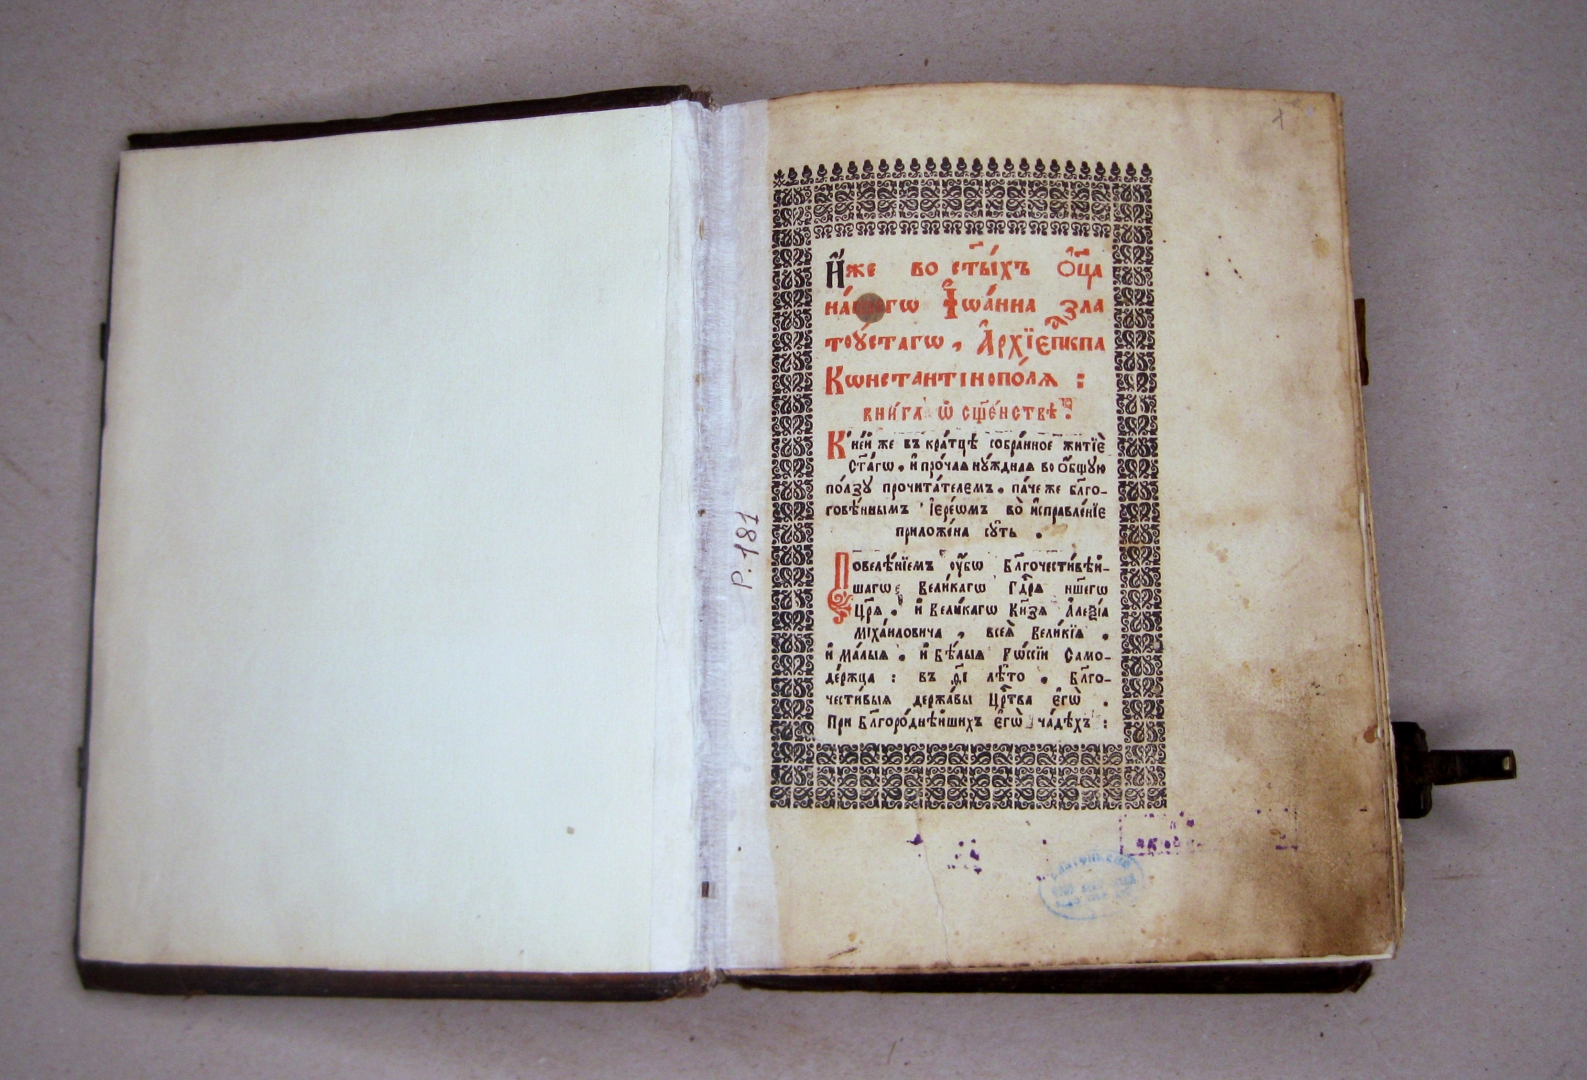 1
И҆́же во ст҃ы́хъ Ѻ҆ц҃а
на́шегѡ І҆ѡа́нна зла
тоꙋ́стагѡ , А҆рхїепⷭ҇кпа
Кѡнстантїнопо́лѧ :
кни́га ѡ҆ сщ҃е́нствѣ :
К̾ не́й же въ кра́тцѣ собра́нное житїѐ
Ст҃а́гѡ . и҆ про́чаѧ нꙋ́ждная во ѻ҆́бщую
по́лзꙋ прочита́телемъ . па́че же бл҃го-
говѣ́ннымъ І҆ере́ѡмъ во̀ и҆справле́нїе
приложе́на сꙋ́ть .
Повелѣ́нїемъ ᲂу҆́бѡ Бл҃гочести́вѣй-
шагѡ Вели́кагѡ Гдⷭ҇рѧ н҃шегѡ
Цр҃ѧ̀ . и҆ Вели́кагѡ Кн҃зѧ А҆леѯі́а
Мїха́иловича , всеѧ̀ Вели́кїѧ .
и҆ Ма́лыѧ . и҆ Бѣ́лыѧ Рѡссі́и Само-
де́ржца : въ лѣ́то . Бл҃го-
чести́выѧ держа́вы Црⷭ҇тва є҆гѡ̀ .
При бл҃горо́днѣйшихъ є҆гѡ̀ ча́дѣхъ :
Р. 181